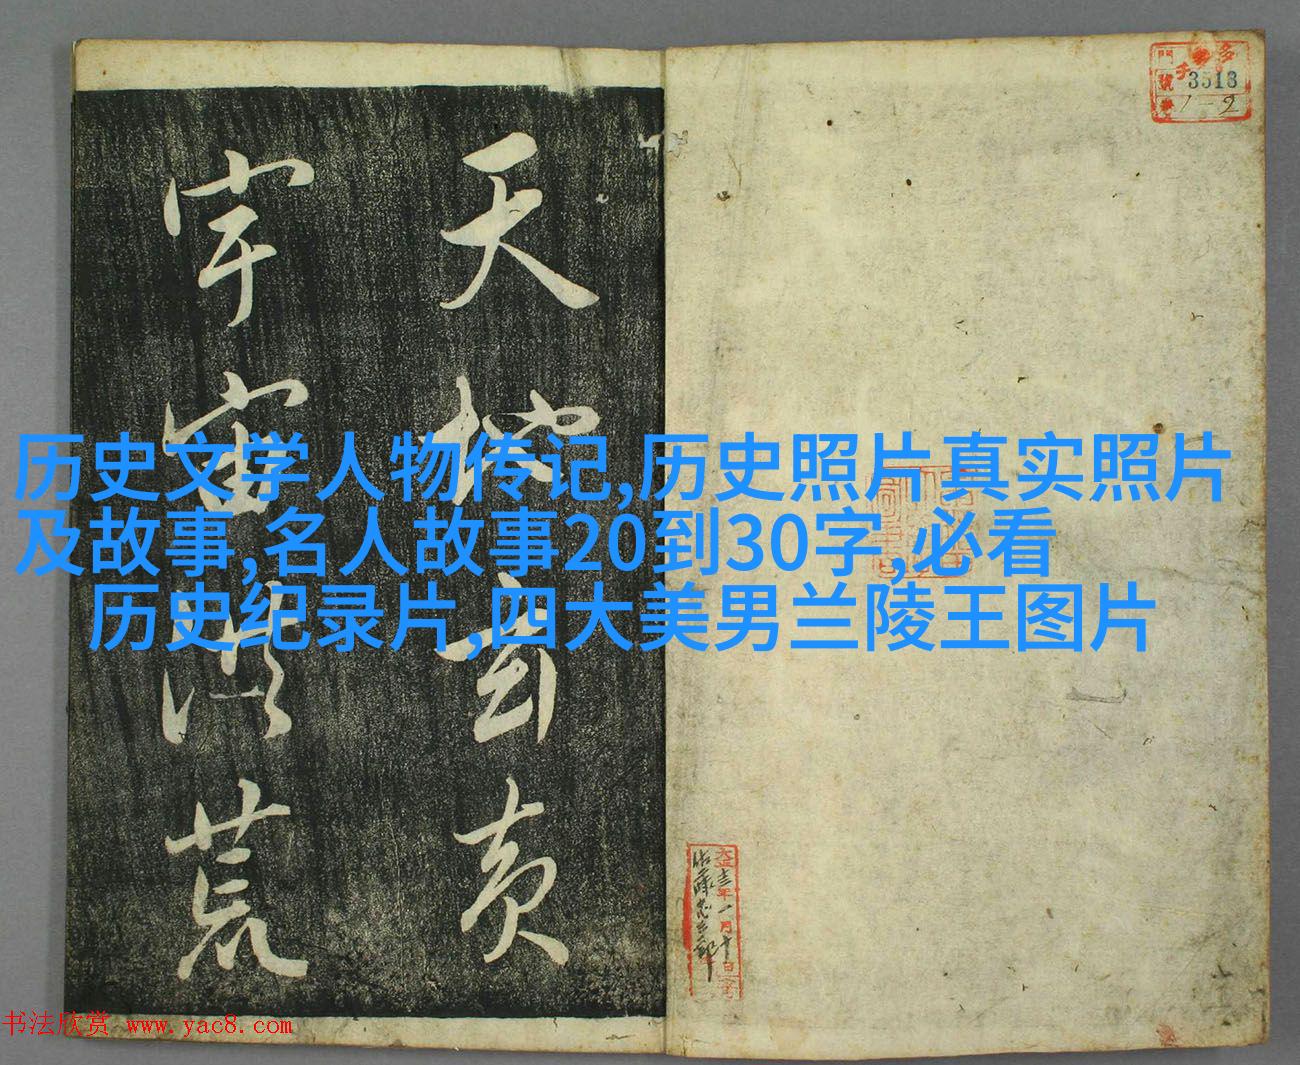 天地玄黄
宇宙洪荒
3513
1-2
历史文学人物传记,历史照片真实照片
及故事,名人故事20到30字,必看
历史纪录片,四大美男兰陵王图片
大正三年一月十日
书法欣赏 www.yac8.com